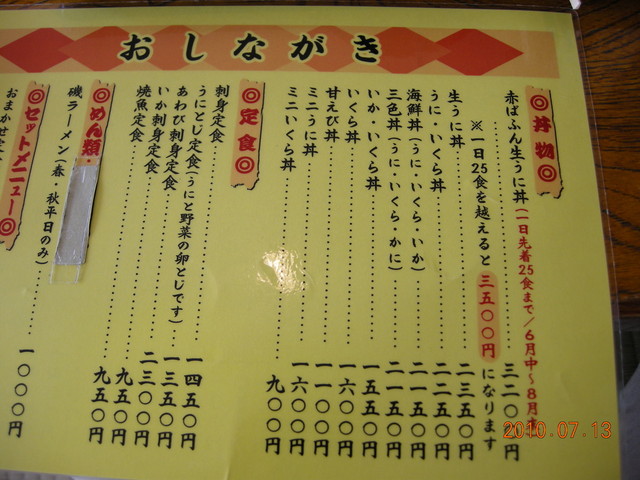 おしながき
◎丼物◎
赤ばふん生うに丼(一日先着25食まで/6月中〜8月末)……三二〇〇円
※一日25食を越えると三五〇〇円になります
生うに丼……二三五〇円
うに・いくら丼……二二五〇円
海鮮丼(うに・いくら・いか)……二一五〇円
三色丼(うに・いくら・かに)……二一五〇円
いか・いくら丼……一五五〇円
いくら丼……一六〇〇円
甘えび丼……一一〇〇円
ミニうに丼……一六〇〇円
ミニいくら丼……九〇〇円
◎定食◎
刺身定食……一四五〇円
うにとじ定食(うにと野菜の卵とじです)……一三五〇円
あわび刺身定食……二三〇〇円
いか刺身定食……九五〇円
焼魚定食……九五〇円
◎めん類
磯ラーメン(春・秋平日のみ)……一〇〇〇円
◎セットメニュー◎
おまかせ定
2010.07.13